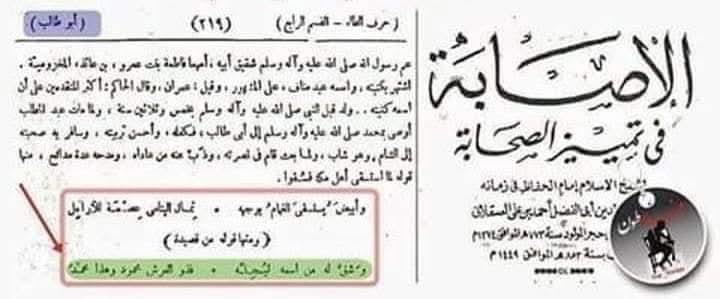 ( حرف الطاء – القسم الرابع ) (٢١٩) ( أبو طالب )
عم رسول الله صلى الله عليه وآله وسلم شقيق أبيه ، أمهما فاطمة بنت عمرو ، بن عائذ ، المخزومية .
اشتهر بكنيته ، واسمه عبد مناف ، على المشهور ، وقيل : عمران ، وقال الحاكم : أكثر المتقدمين على أن
اسمه كنيته . . ولد قبل النبي صلى الله عليه وآله وسلم بخمس وثلاثين سنة ، ولما مات عبد المطلب
أوصى بمحمد صلى الله عليه وآله وسلم إلى أبي طالب ، فكفله ، وأحسن تربيته ، وسافر به صحبته
إلى الشام ، وهو شاب ، ولما بعث قام في نصرته ، وذب عنه من عاداه ، ومدحه عدة مدائح ، منها
قوله لما استسقى أهل مكة فسقوا .
وأبيض يستسقى الغمام بوجهه • ثمال اليتامى عصمة للأرامل
( ومنها قوله من قصيدة )
وشق له من اسمه ليجله • فذو العرش محمود وهذا محمد
الإصابة
في تمييز الصحابة
لشيخ الإسلام إمام الحفاظ في زمانه
الدين أبي الفضل أحمد بن علي العسقلاني
حجر المولود سنة ٧٧٣ هـ الموافق ١٣٧٢ م
سنة ٨٥٢ هـ الموافق ١٤٤٩ م